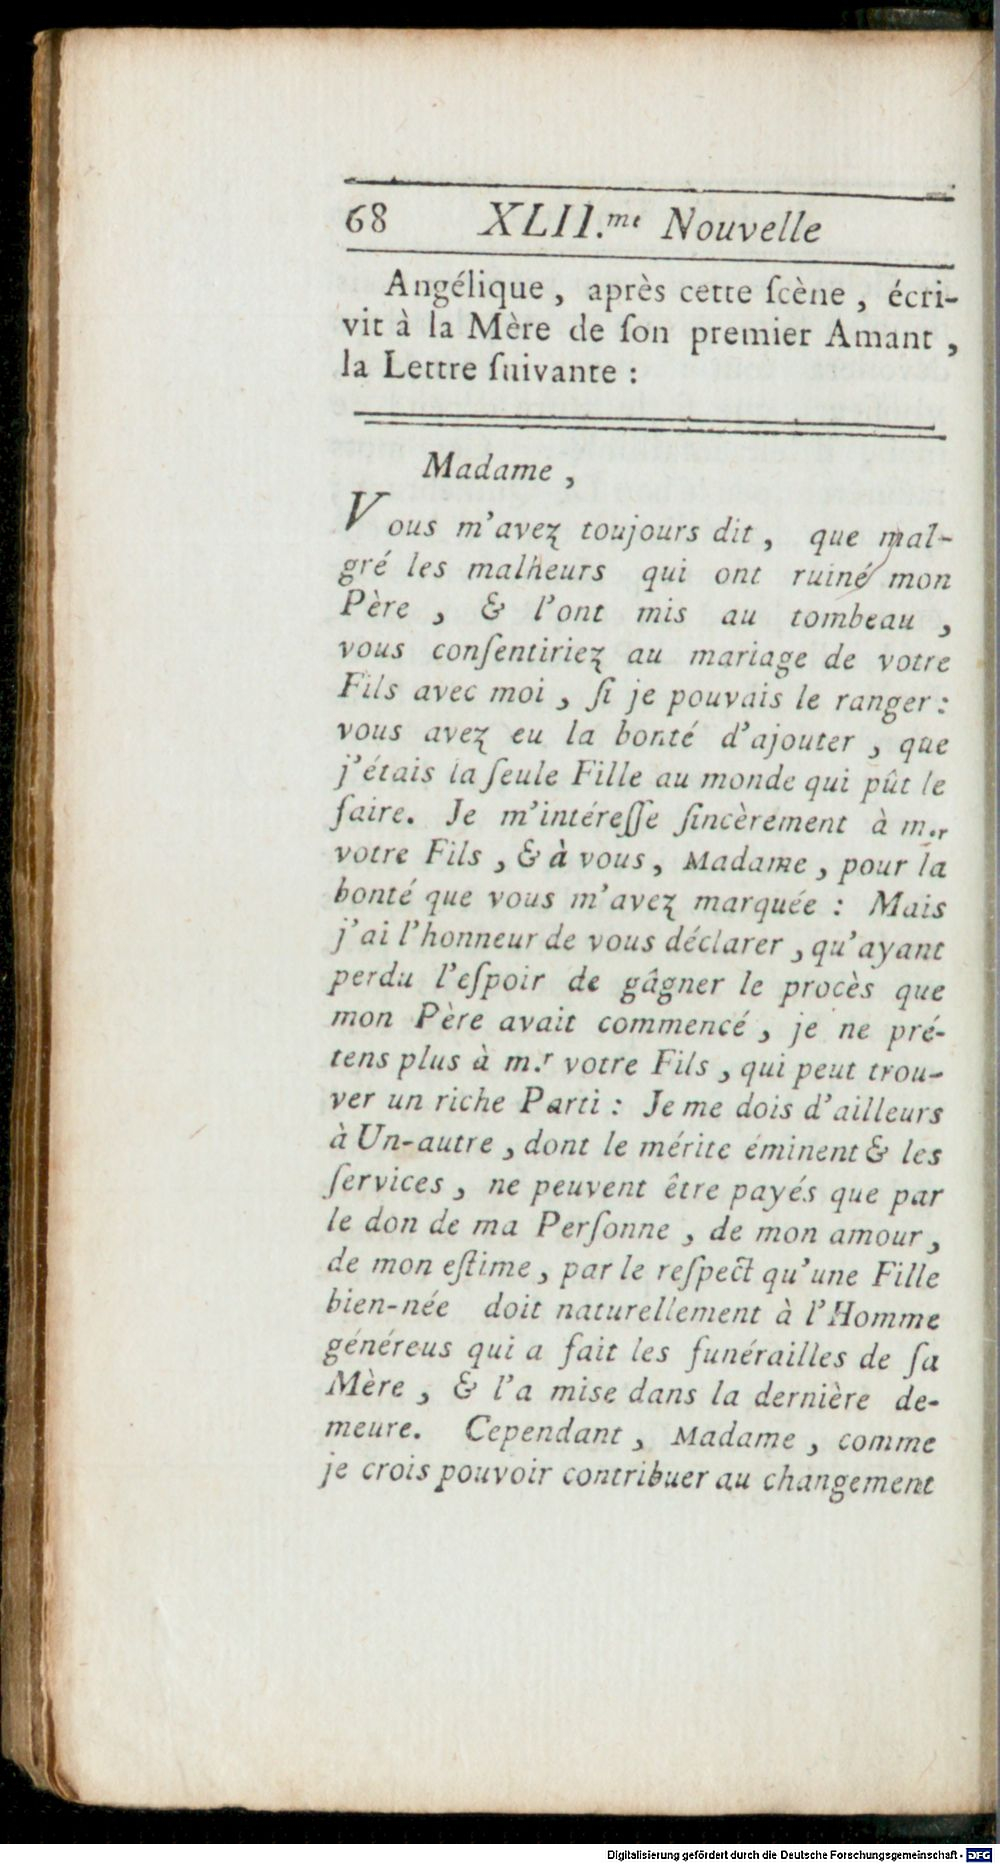 68 XLII.me Nouvelle
Angélique, après cette ſcène, écri-
vit à la Mère de ſon premier Amant,
la Lettre ſuivante :
Madame,
Vous m'avez toujours dit, que mal-
gré les malheurs qui ont ruiné mon
Père, & l'ont mis au tombeau,
vous conſentiriez au mariage de votre
Fils avec moi, ſi je pouvais le ranger:
vous avez eu la bonté d'ajouter, que
j'étais la ſeule Fille au monde qui pût le
faire. Je m'intéreſſe ſincèrement à m.r
votre Fils, & à vous, Madame, pour la
bonté que vous m'avez marquée : Mais
j'ai l'honneur de vous déclarer, qu'ayant
perdu l'eſpoir de gâgner le procès que
mon Père avait commencé, je ne pré-
tens plus à m.r votre Fils, qui peut trou-
ver un riche Parti : Je me dois d'ailleurs
à Un-autre, dont le mérite éminent & les
ſervices, ne peuvent être payés que par
le don de ma Perſonne, de mon amour,
de mon eſtime, par le reſpect qu'une Fille
bien-née doit naturellement à l'Homme
généreus qui a fait les funérailles de ſa
Mère, & l'a mise dans la dernière de-
meure. Cependant, Madame, comme
je crois pouvoir contribuer au changement
Digitalisierung gefördert durch die Deutsche Forschungsgemeinschaft - DFG